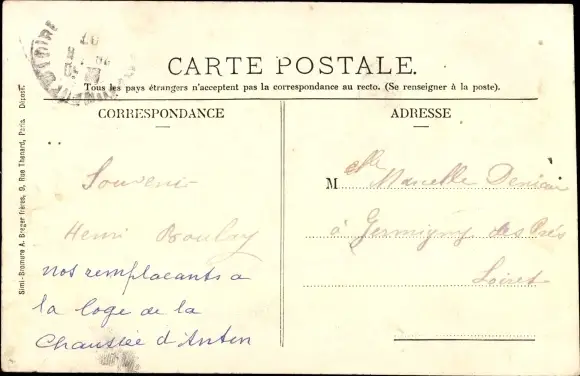 CARTE POSTALE.
Tous les pays étrangers n'acceptent pas la correspondance au recto. (Se renseigner à la poste).
CORRESPONDANCE
ADRESSE
Souvenir
Henri Boulay
nos remplacants a
la loge de la
Chaussée d'Antin
M elle Marcelle
à Germigny des Prés
Loiret
Simi-Bromure A. Breger frères, 9, Rue Thénard, Paris. Déposé.